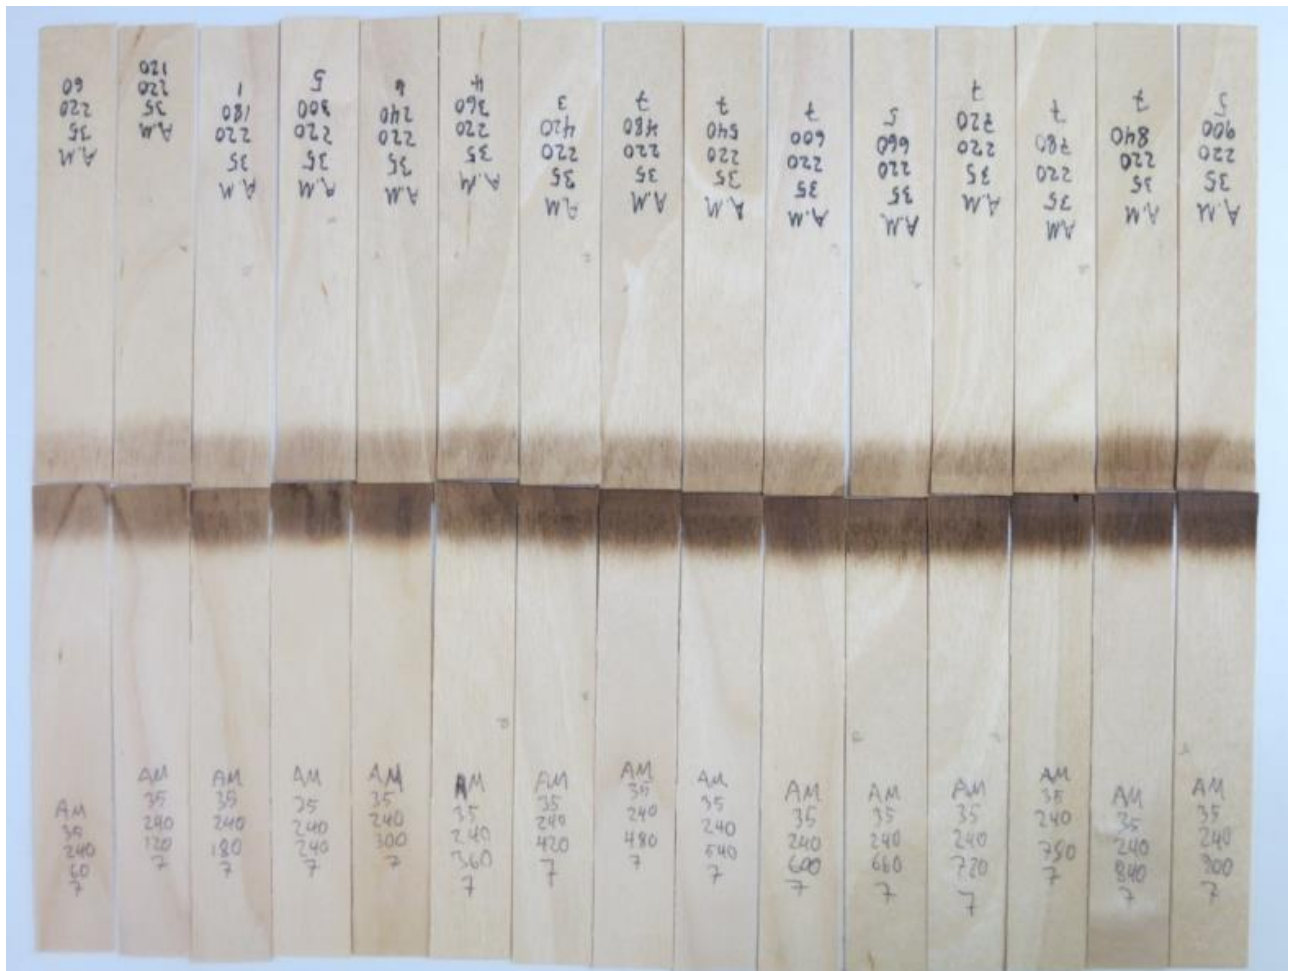 A.M
35
220
60
A.M
35
220
120
A.M
35
220
180
1
A.M
35
220
300
5
A.M
35
220
240
6
A.M
35
220
360
4
A.M
35
220
420
3
A.M
35
220
480
7
A.M
35
220
540
7
A.M
35
220
600
7
A.M
35
220
660
5
A.M
35
220
720
7
AM
35
220
780
7
A.M
35
220
840
7
A.M
35
220
900
5
AM
35
240
60
7
AM
35
240
120
7
AM
35
240
180
7
AM
35
240
240
7
AM
35
240
300
7
AM
35
240
360
7
AM
35
240
420
7
AM
35
240
480
7
AM
35
240
540
7
AM
35
240
600
7
AM
35
240
660
7
AM
35
240
720
7
AM
35
240
780
7
AM
35
240
840
7
AM
35
240
900
7